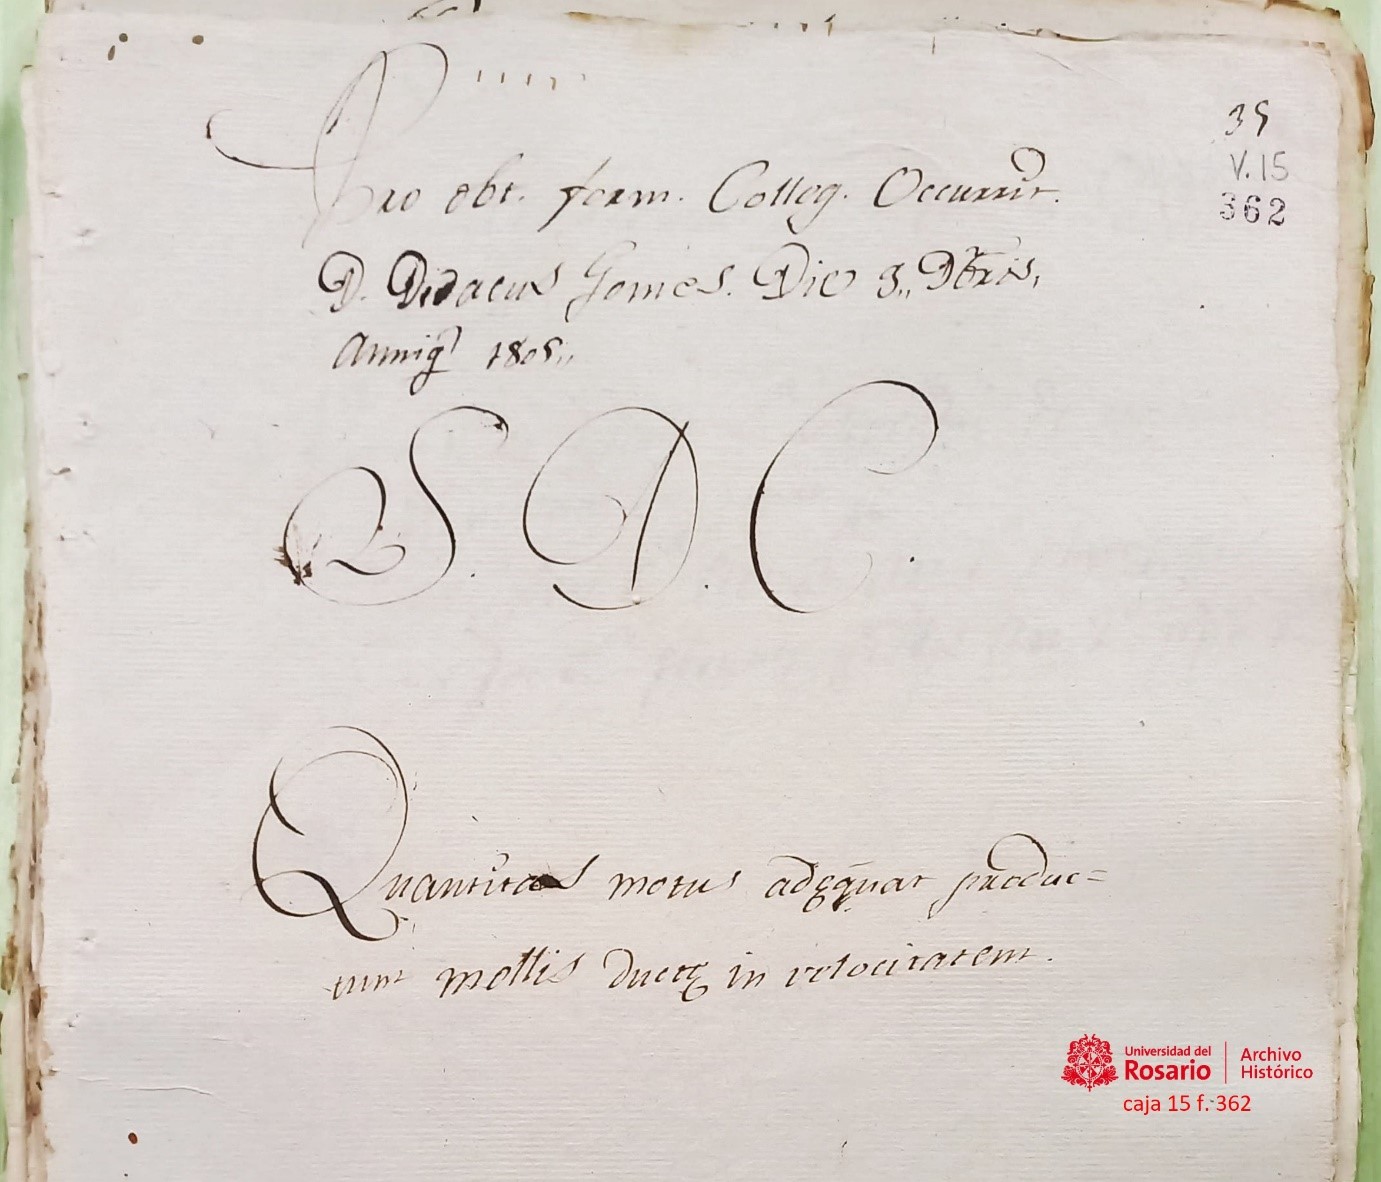 35
V.15
362
Pro obt. form. Colleg. Occurrit.
D. Didacus Gomes. Die 3,, Dbris,
Anniq 1805,,
S. D. C.
Quantitas motus adęquat produc=
tum mollis ductę in velocitatem.
Universidad del
Rosario
Archivo
Histórico
caja 15 f. 362